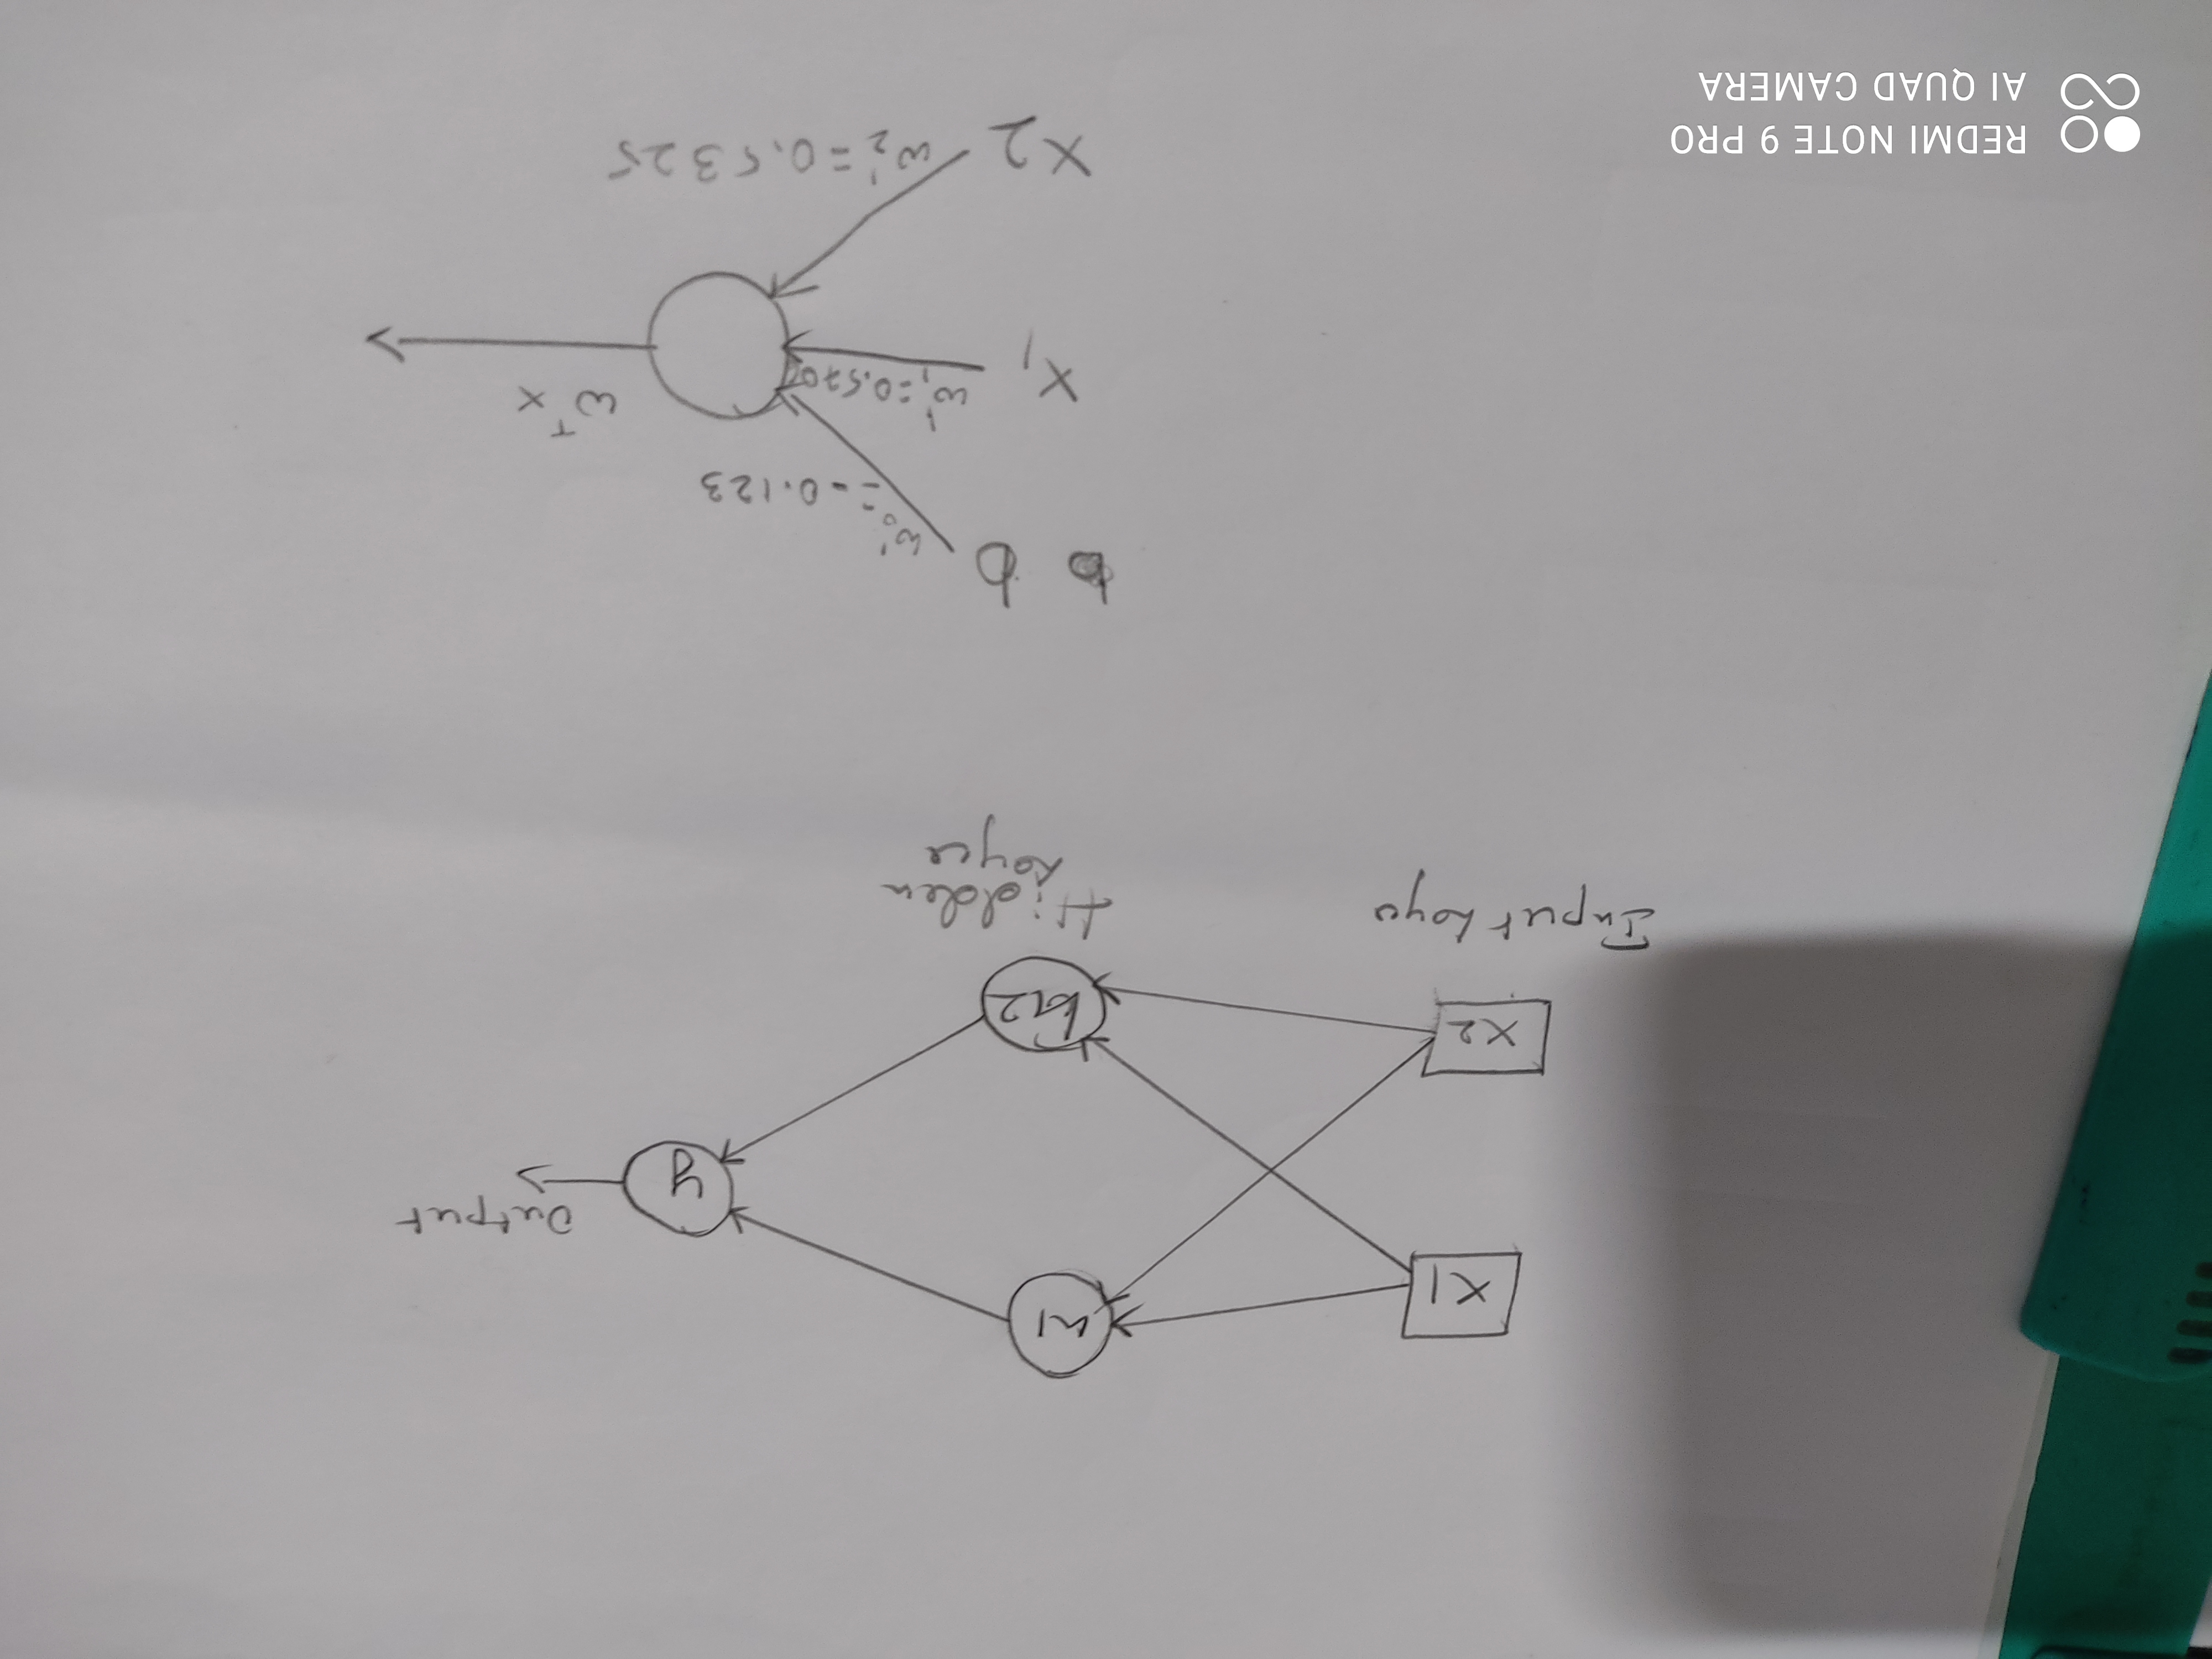 x1
h1
y
Output
x2
h2
Input Layer
Hidden
Layer
b b
w₀' = -0.123
x₁ w₁' = 0.570
wᵀx
x2 w₂' = 0.5325
REDMI NOTE 9 PRO
AI QUAD CAMERA